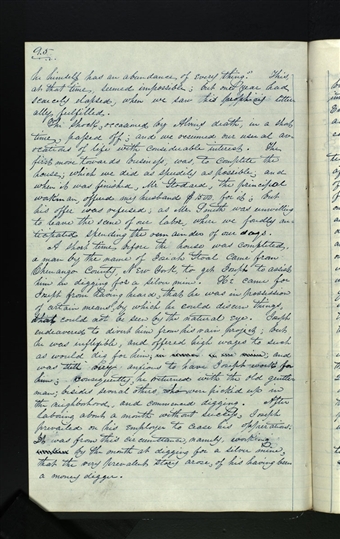 95
he himself has an abundance of every thing." This
at that time, seemed impossible; but one year had
scarcely elapsed, when we saw this prophicy litter
ally fulfilled.
The shock, occasioned by Alvins death, in a short
time, passed off; and we resumed our usual av
ocations of life with considerable interest. The
first move towards business, was, to complete the
house; which we did as speedily as possible; and
when it was finished, Mr Stodard, the principal
workman, offered my husband $1500 for it; but
his offer was refused; as Mr. Smith was unwilling
to leave the scene of our labor, where we fondly an
ticipated spending the remainder of our days.
A short time before the house was completed,
a man by the name of Josiah Stoal came from
Chenango County, New York, to get Joseph to assist
him in digging for a silver mine. He came for
Joseph from having heard, that he was in possession
of certain means, by which he could discern things,
that could not be seen by the natural eye. Joseph
endeavored to divert him from his vain project; but
he was inflexible, and offered high wages to such
as would dig for him, and
was still very anxious to have Joseph work for
him; consequently, he returned with the old gentle
man; besides several others, who were picked up in
the neighborhood, and commenced digging. After
laboring about a month without success, Joseph
prevailed on his employer to cease his opperations.
It was from this circumstance, namely, working
by the month at digging for a silver mine,
that the very prevalent story arose, of his having been
a money digger.